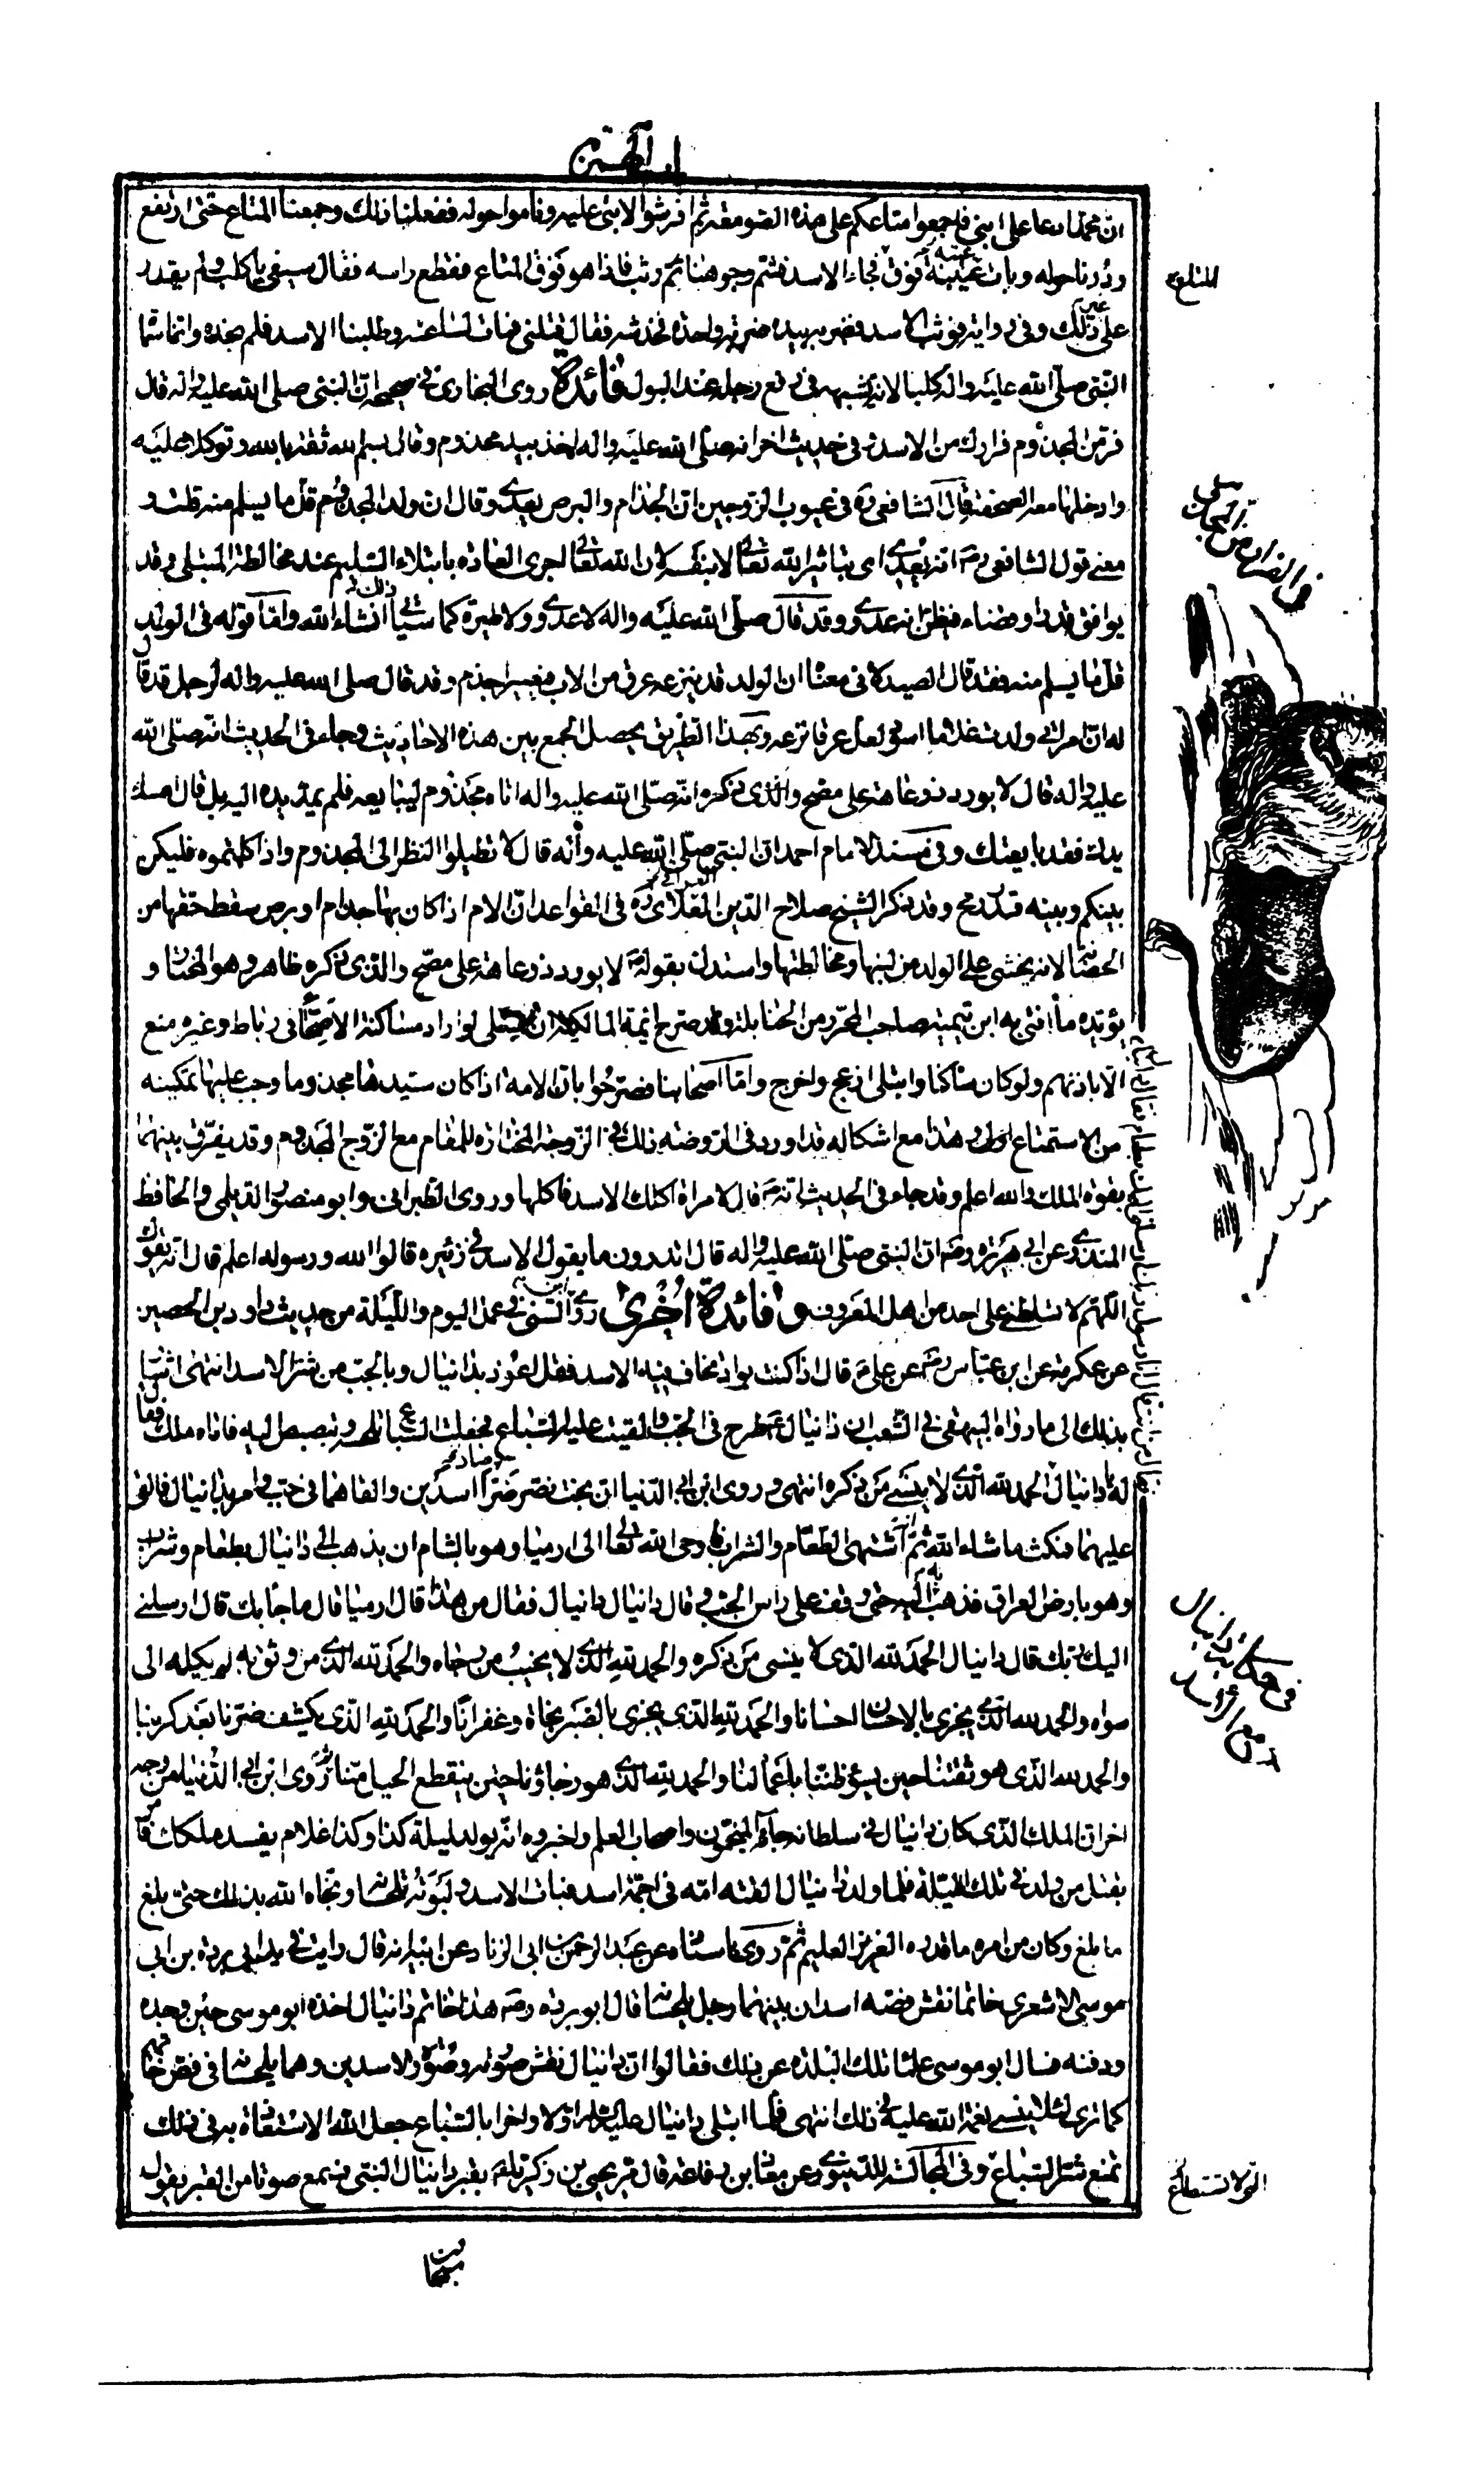 ان محمدا دعا على ابنى فاجمعوا متاعكم على هذه الصومعة ثم افرشوا لابنى عليه وناموا حوله ففعلنا ذلك وجمعنا المتاع حتى ارتفع
ودرنا حوله وبات عتيبة فوق فجاء الاسد فشم وجوهنا ثم وثب فاذا هو فوق المتاع فقطع راسه فقال سيفى يا كلب ولم يقدر
على غير ذلك وفى رواية فوثب الاسد فضربه بيده ضربة واحدة فخدشه فقال قتلنى فمات لساعته وطلبنا الاسد فلم نجده وانما سماه
النبى صلى الله عليه واله كلبا لانه يشبهه فى رفع رجله عند البول فائدة روى البخارى فى صحيحه ان النبى صلى الله عليه واله قال
فر من المجذوم فرارك من الاسد وفى حديث اخر انه صلى الله عليه واله اخذ بيد مجذوم وقال بسم الله ثقة بالله وتوكلا عليه
وادخلها معه الصحفة قال الشافعى ره فى عيوب الزوجين ان الجذام والبرص يعدى وقال ان ولد المجذوم قل ما يسلم منه قلت و
معنى قول الشافعى ره انه يعدى اى بتاثير الله تعالى لا بنفسه لان الله تعالى اجرى العادة بابتلاء السليم عند مخالطة المبتلى وقد
يوافق قدرا وقضاء فيظن انه عدوى وقد قال صلى الله عليه واله لا عدوى ولا طيرة كما سياتى انشاء الله واما قوله فى الولد
قل ما يسلم منه فقد قال الصيدلانى معناه ان الولد قد ينزعه عرق من الاب فيصير اجذم وقد قال صلى الله عليه واله لرجل قد قال
له ان امراتى ولدت غلاما اسود لعل عرقا نزعه وبهذا الطريق يحصل الجمع بين هذه الاحاديث وجاء فى الحديث انه صلى الله
عليه واله قال لا يورد ذو عاهة على مصح والذى نذكره انه صلى الله عليه واله اتاه مجذوم ليبايعه فلم يمد يده اليه بل قال امسك
يدك فقد بايعتك وفى مسند الامام احمد ان النبى صلى الله عليه واله قال لا تطيلوا النظر الى المجذوم واذا كلمتموه فليكن
بينكم وبينه قيد رمح وقد ذكر الشيخ صلاح الدين العلائى ره فى القواعد ان الام اذا كان بها جذام او برص سقط حقها من
الحضانة لانه يخشى على الولد من لبنها ومخالطتها واستدل بقوله لا يورد ذو عاهة على مصح والذى ذكره ظاهر وهو المختار و
يؤيده ما افتى به ابن تيمية صاحب المحرر من الحنابلة وقد صرح ائمة المالكية ان المبتلى لو اراد مساكنة الاصحاء فى رباط وغيره منع
الا باذنهم ولو كان ساكنا وابتلى ازعج واخرج واما اصحابنا فصرحوا بان الامة اذا كان سيدها مجذوما وجب عليها تمكينه
من الاستمتاع اولى وهذا مع اشكاله قد اورد فى الروضة ذلك فى الزوجة المختارة للمقام مع الزوج المجذوم وقد يفرق بينهما
بقوة الملك والله اعلم وقد جاء فى الحديث انه قال لامراة اكلك الاسد فاكلها وروى الطبرانى وابو منصور الديلمى والحافظ
المنذرى عن ابى هريرة رض ان النبى صلى الله عليه واله قال اتدرون ما يقول الاسد فى زئيره قالوا الله ورسوله اعلم قال انه يقول
اللهم لا تسلطنى على احد من اهل المعروف وفائدة اخرى روى ابن السنى فى عمل اليوم والليلة من حديث داود بن الحصين
عن عكرمة عن ابن عباس رض عن على قال اذا كنت بواد تخاف فيه الاسد فقل اعوذ بدانيال وبالجب من شر الاسد انتهى اشار
بذلك الى ما رواه البيهقى فى الشعب ان دانيال طرح فى الجب والقيت عليه السباع فجعلت السباع تلحسه وتبصبص اليه فاتاه ملك فقال
له يا دانيال الحمد لله الذى لا ينسى من ذكره انتهى وروى ابن ابى الدنيا ان بخت نصر ضرا اسدين والقاهما فى جب وامر بدانيال فالقى
عليهما فمكث ما شاء الله ثم انه اشتهى الطعام والشراب فاوحى الله تعالى الى ارميا وهو بالشام ان يذهب الى دانيال بطعام وشراب
وهو بارض العراق فذهب اليه حتى وقف على راس الجب وقال دانيال دانيال فقال من هذا قال ارميا قال ما جاء بك قال ارسلنى
اليك ربك قال دانيال الحمد لله الذى لا ينسى من ذكره والحمد لله الذى لا يخيب من رجاه والحمد لله الذى من وثق به لم يكله الى
سواه والحمد لله الذى يجزى بالاحسان احسانا والحمد لله الذى يجزى بالصبر نجاة وغفرانا والحمد لله الذى يكشف ضرنا بعد كربنا
والحمد لله الذى هو ثقتنا حين يسؤ ظننا باعمالنا والحمد لله الذى هو رجاؤنا حين ينقطع الحيل منا ثم روى ابن ابى الدنيا من وجه
اخر ان الملك الذى كان دانيال فى سلطانه جاءه المنجمون واصحاب العلم واخبروه انه يولد ليلة كذا وكذا غلام يفسد ملكك فامر
بقتل من ولد فى تلك الليلة فلما ولد دانيال القته امه فى اجمة اسد فبات الاسد ولبوته يلحسانه ونجاه الله بذلك حتى بلغ
ما بلغ وكان من امره ما قدره العزيز العليم ثم روى باسناده عن عبد الرحمن بن ابى الزناد عن ابيه انه قال رايت فى يد ابى بردة بن ابى
موسى الاشعرى خاتما نقش فصه اسدان بينهما رجل يلحسانه قال ابو بردة رض هذا خاتم دانيال اخذه ابو موسى حين وجده
ودفنه فسال ابو موسى علماء تلك البلدة عن ذلك فقالوا ان دانيال نقش صورته وصورة الاسدين وهما يلحسانه فى فص خاتمه
كما ترى لئلا ينسى نعمة الله عليه فى ذلك انتهى فلما ابتلى دانيال عليه السلام اولا واخرا بالسباع جعل الله الاستعاذة به فى ذلك
تمنع شر السباع وفى المجالسة للدينورى عن معاذ بن رفاعة قال مر يحيى بن زكريا بقبر دانيال النبى فسمع صوتا من القبر يقول
سبحان من
المتاع
فى حكاية دانيال
مع الاسد
التى لا تستطاع